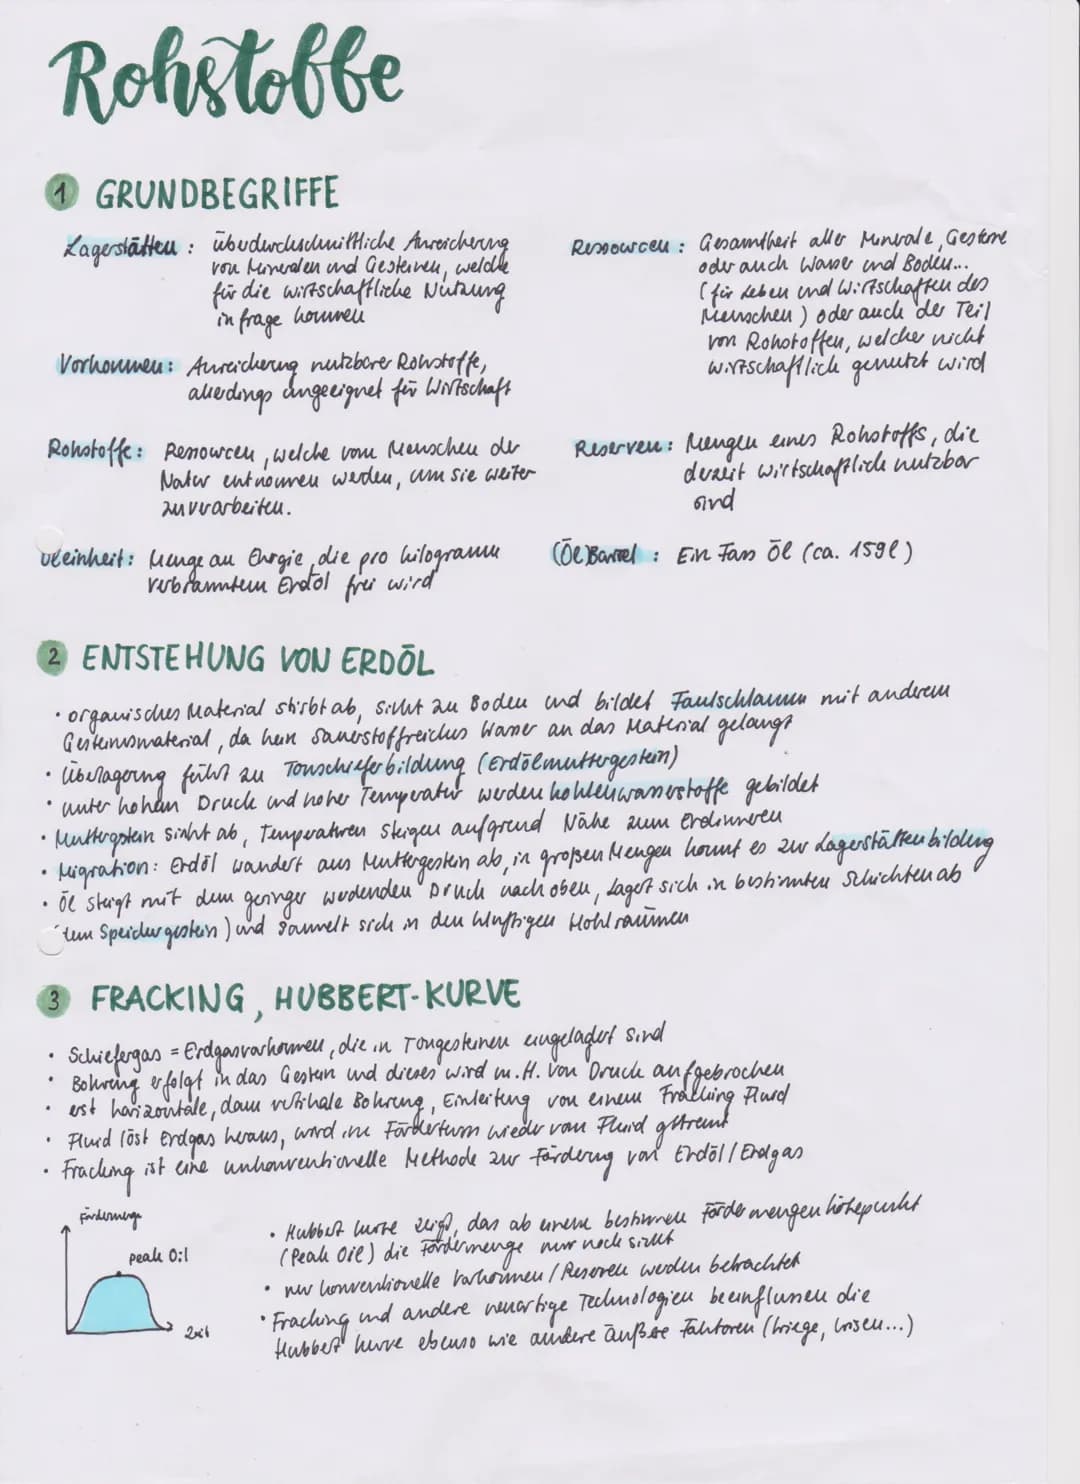 Rohstoffe
1 GRUNDBEGRIFFE
Lagerstätten : überdurchschnittliche Anreicherung
von Mineralen und Gesteinen, welche
für die wirtschaftliche Nutzung
in frage kommen
Vorkommen: Anreicherung nutzbarer Rohstoffe,
allerdings ungeeignet für Wirtschaft
Rohstoffe: Ressourcen, welche vom Menschen der
Natur entnommen werden, um sie weiter
zu verarbeiten.
Öleinheit: Menge an Energie, die pro kilogramm
verbranntem Erdöl frei wird
Ressourcen : Gesamtheit aller Minerale, Gesteine
oder auch Wasser und Boden...
(für Leben und Wirtschaften des
Menschen) oder auch der Teil
von Rohstoffen, welcher nicht
wirtschaftlich genutzt wird
Reserven: Mengen eines Rohstoffs, die
derzeit wirtschaftlich nutzbar
sind
(Öl)Barrel : Ein Fass Öl (ca. 159l)
2 ENTSTEHUNG VON ERDÖL
• organisches Material stirbt ab, sinkt zu Boden und bildet Faulschlamm mit anderem
Gesteinsmaterial, da kein sauerstoffreiches Wasser an das Material gelangt
• Überlagerung führt zu Tonschieferbildung (Erdölmuttergestein)
• unter hohem Druck und hoher Temperatur werden kohlenwasserstoffe gebildet
• Muttergestein sinkt ab, Temperaturen steigen aufgrund Nähe zum Erdinneren
• Migration: Erdöl wandert aus Muttergestein ab, in großen Mengen kommt es zur Lagerstättenbildung
• Öl steigt mit dem geringer werdenden Druck nach oben, lagert sich in bestimmten Schichten ab
(dem Speichergestein) und sammelt sich in den klüftigen Hohlräumen
3 FRACKING, HUBBERT-KURVE
• Schiefergas = Erdgasvorkommen, die in Tongesteinen eingelagert sind
• Bohrung erfolgt in das Gestein und dieses wird m.H. von Druck aufgebrochen
• erst horizontale, dann vertikale Bohrung, Einleitung von einem Fracking Fluid
• Fluid löst Erdgas heraus, wird im Förderturm wieder vom Fluid getrennt
• Fracking ist eine unkonventionelle Methode zur Förderung von Erdöl/Erdgas
Fördermenge
peak Oil
Zeit
• Hubbert kurve zeigt, das ab einem bestimmten Fördermengenhöhepunkt
(Peak Oil) die Fördermenge nur noch sinkt
• nur konventionelle Vorkommen/Reserven werden betrachtet
• Fracking und andere neuartige Technologien beeinflussen die
Hubbert kurve ebenso wie andere äußere Faktoren (kriege, krisen...)